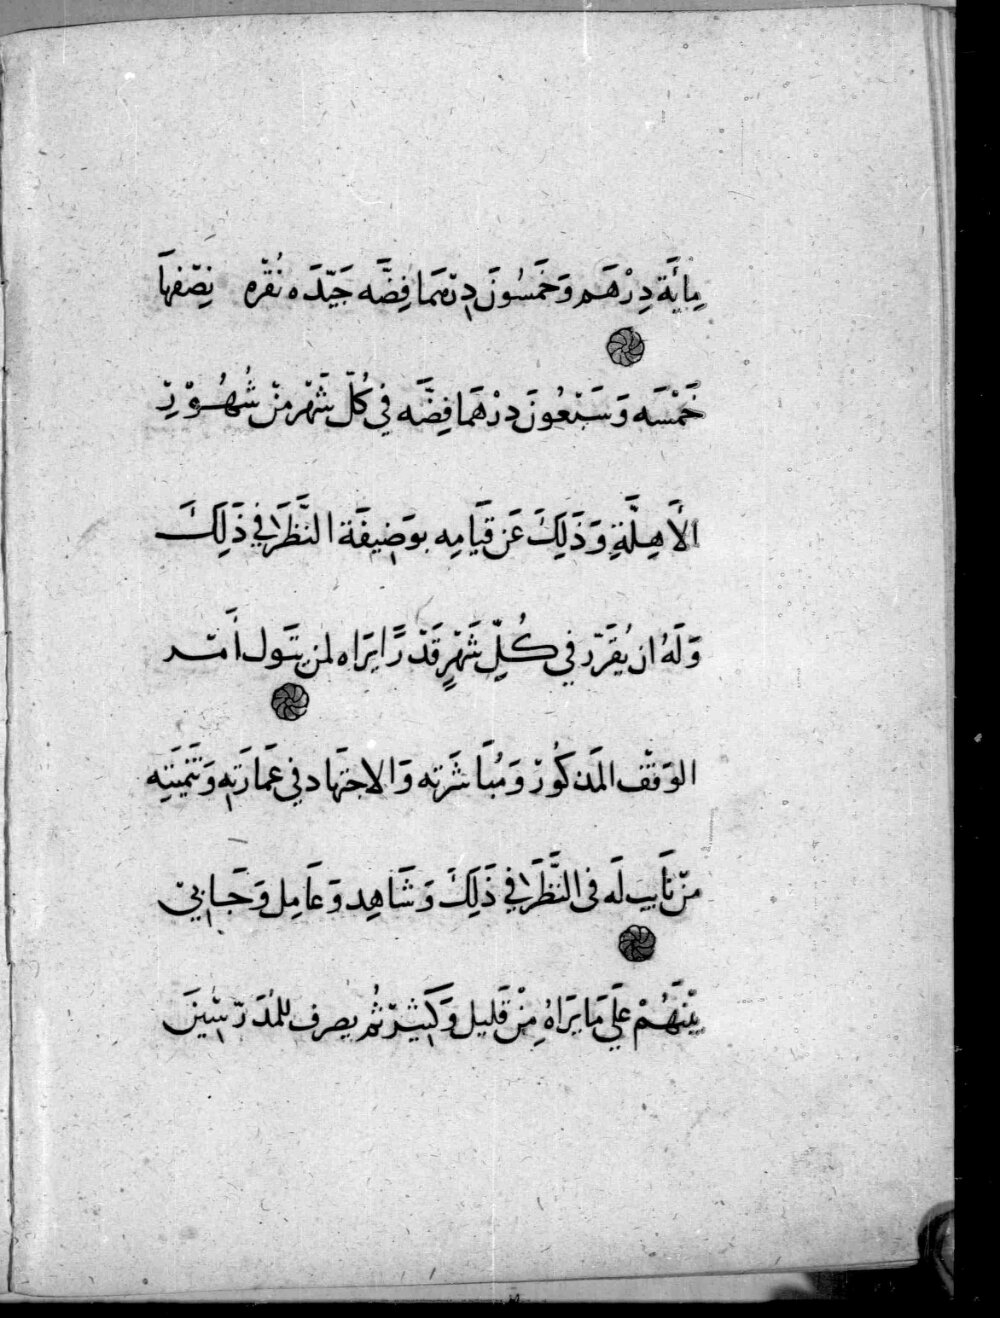 مِايَة دِرْهَم وَخَمسُونَ دِرْهَما فِضَّه جَيّدَه نُقْره نِصْفهَا
خَمْسَه وَسَبْعُونَ دِرْهَما فِضَّه فِي كُلّ شَهْر مِنْ شُهُوْرِ
الأَهِلَّةِ وَذَلِكَ عَن قيَامِه بوَضِيفَة النَّظَر فِي ذَلِكَ
وَلَهُ ان يُقَرّر فِي كُلِّ شَهْرٍ قَدْرًا يَرَاه لمن يتَول أمْر
الوَقْف المَذكُورْ وَمُبَاشَرته وَالاجتهَاد في عمَارَته وَتَنْميَتِه
مِنْ نَايب لَه في النَّظَر فِي ذَلِكَ وَشَاهِد وَعَامِل وَجَابيْ
بَيْنَهُمْ عَلَي مَا يَرَاهُ مِنْ قَلِيل وَكَثِيرْ ثُم يصرف للمُدَرّسِينَ